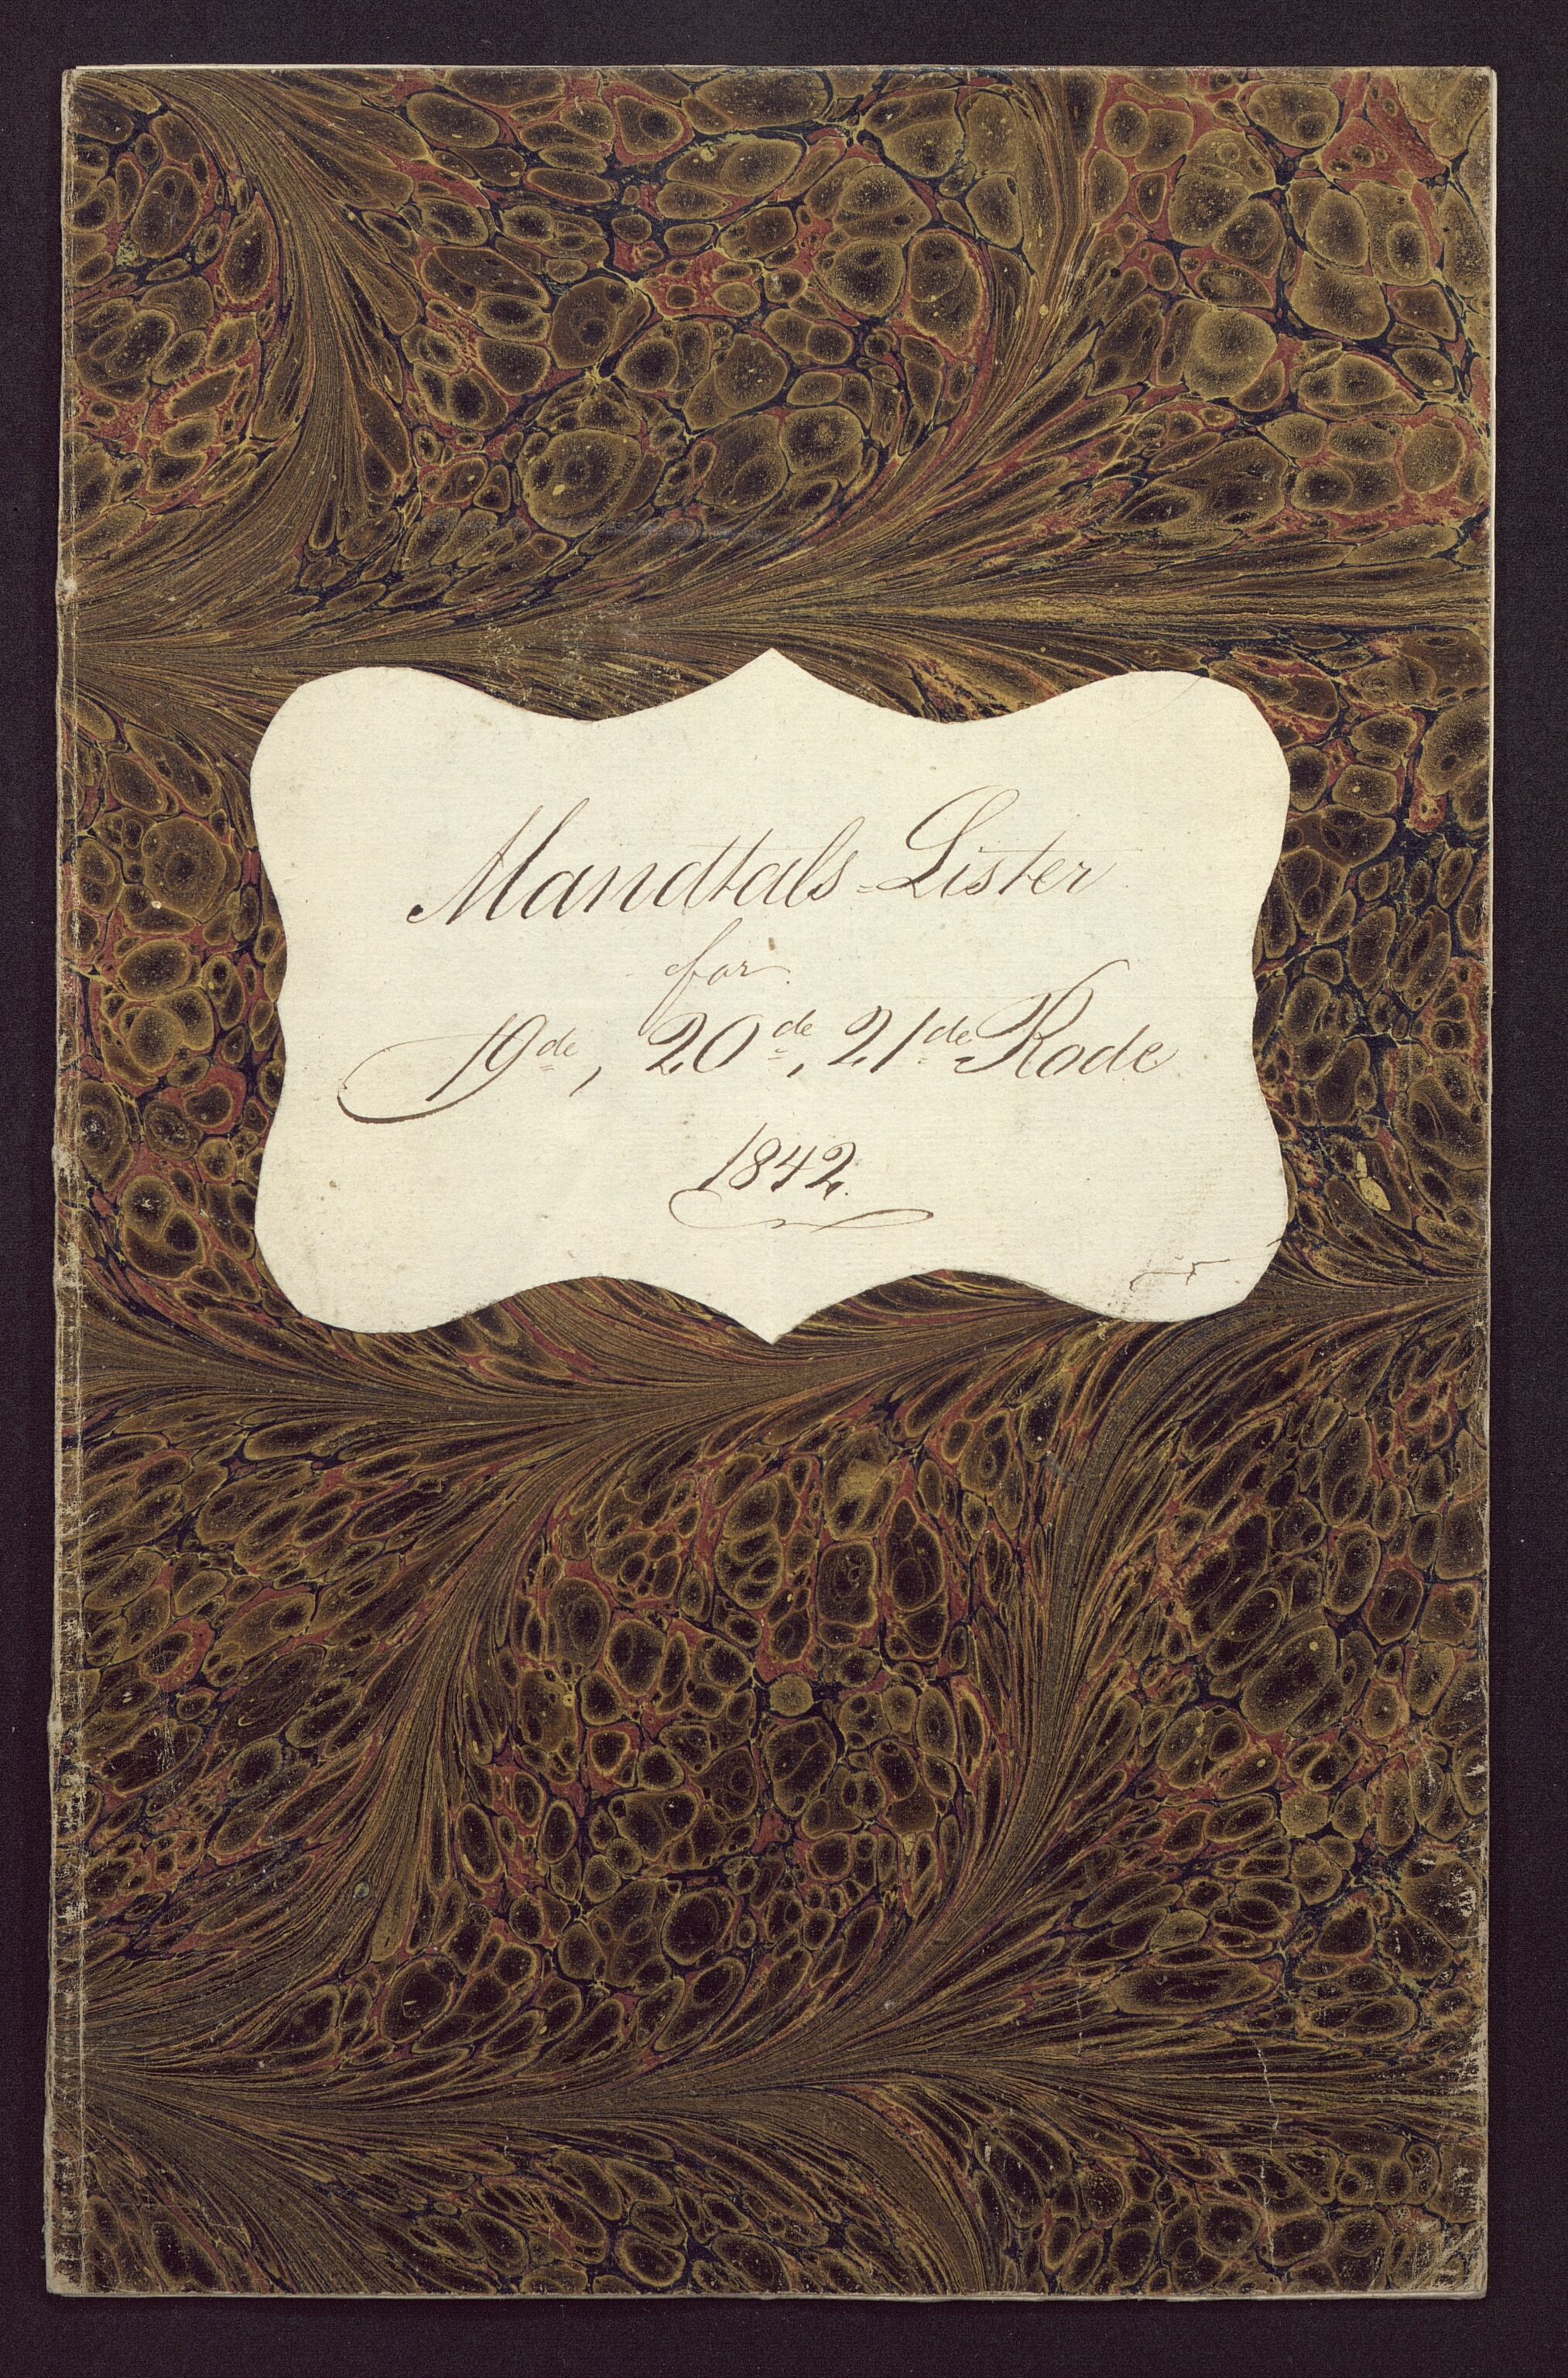 Mandtals-Lister
for
19de, 20de, 21de Rode
1842.